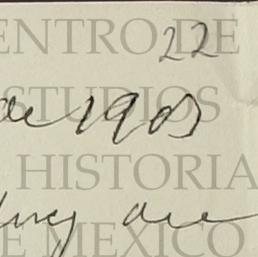 ENTRO DE
22
STUDIOS
de 1903
HISTORIA
E MEXICO